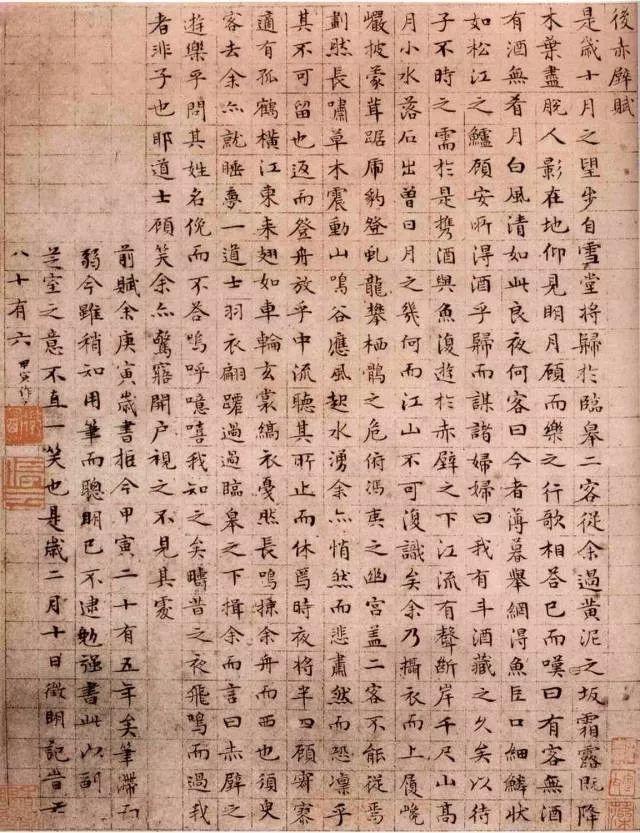 後赤壁賦
是歲十月之望步自雪堂將歸於臨皋二客從余過黃泥之坂霜露既降
木葉盡脫人影在地仰見明月顧而樂之行歌相答已而嘆曰有客無酒
有酒無肴月白風清如此良夜何客曰今者薄暮舉網得魚巨口細鱗狀
如松江之鱸顧安所得酒乎歸而謀諸婦婦曰我有斗酒藏之久矣以待
子不時之需於是携酒與魚復遊於赤壁之下江流有聲斷岸千尺山高
月小水落石出曾日月之幾何而江山不可復識矣余乃攝衣而上履巉
巖披蒙茸踞虎豹登虬龍攀栖鶻之危俯馮夷之幽宮盖二客不能從焉
劃然長嘯草木震動山鳴谷應風起水湧余亦悄然而悲肅然而恐凜乎
其不可留也返而登舟放乎中流聽其所止而休焉時夜將半四顧寂寥
適有孤鶴橫江東來翅如車輪玄裳縞衣戛然長鳴掠余舟而西也須臾
客去余亦就睡夢一道士羽衣翩躚過過臨皋之下揖余而言曰赤壁之
遊樂乎問其姓名俛而不答嗚呼噫嘻我知之矣疇昔之夜飛鳴而過我
者非子也耶道士顧笑余亦驚寤開戶視之不見其處
前賦余庚寅歲書拒今甲寅二十有五年矣筆滯而
弱今雖稍知用筆而聰明已不逮勉强書此以副
芝室之意不直一笑也是歲二月十日徵明記昔年
八十有六